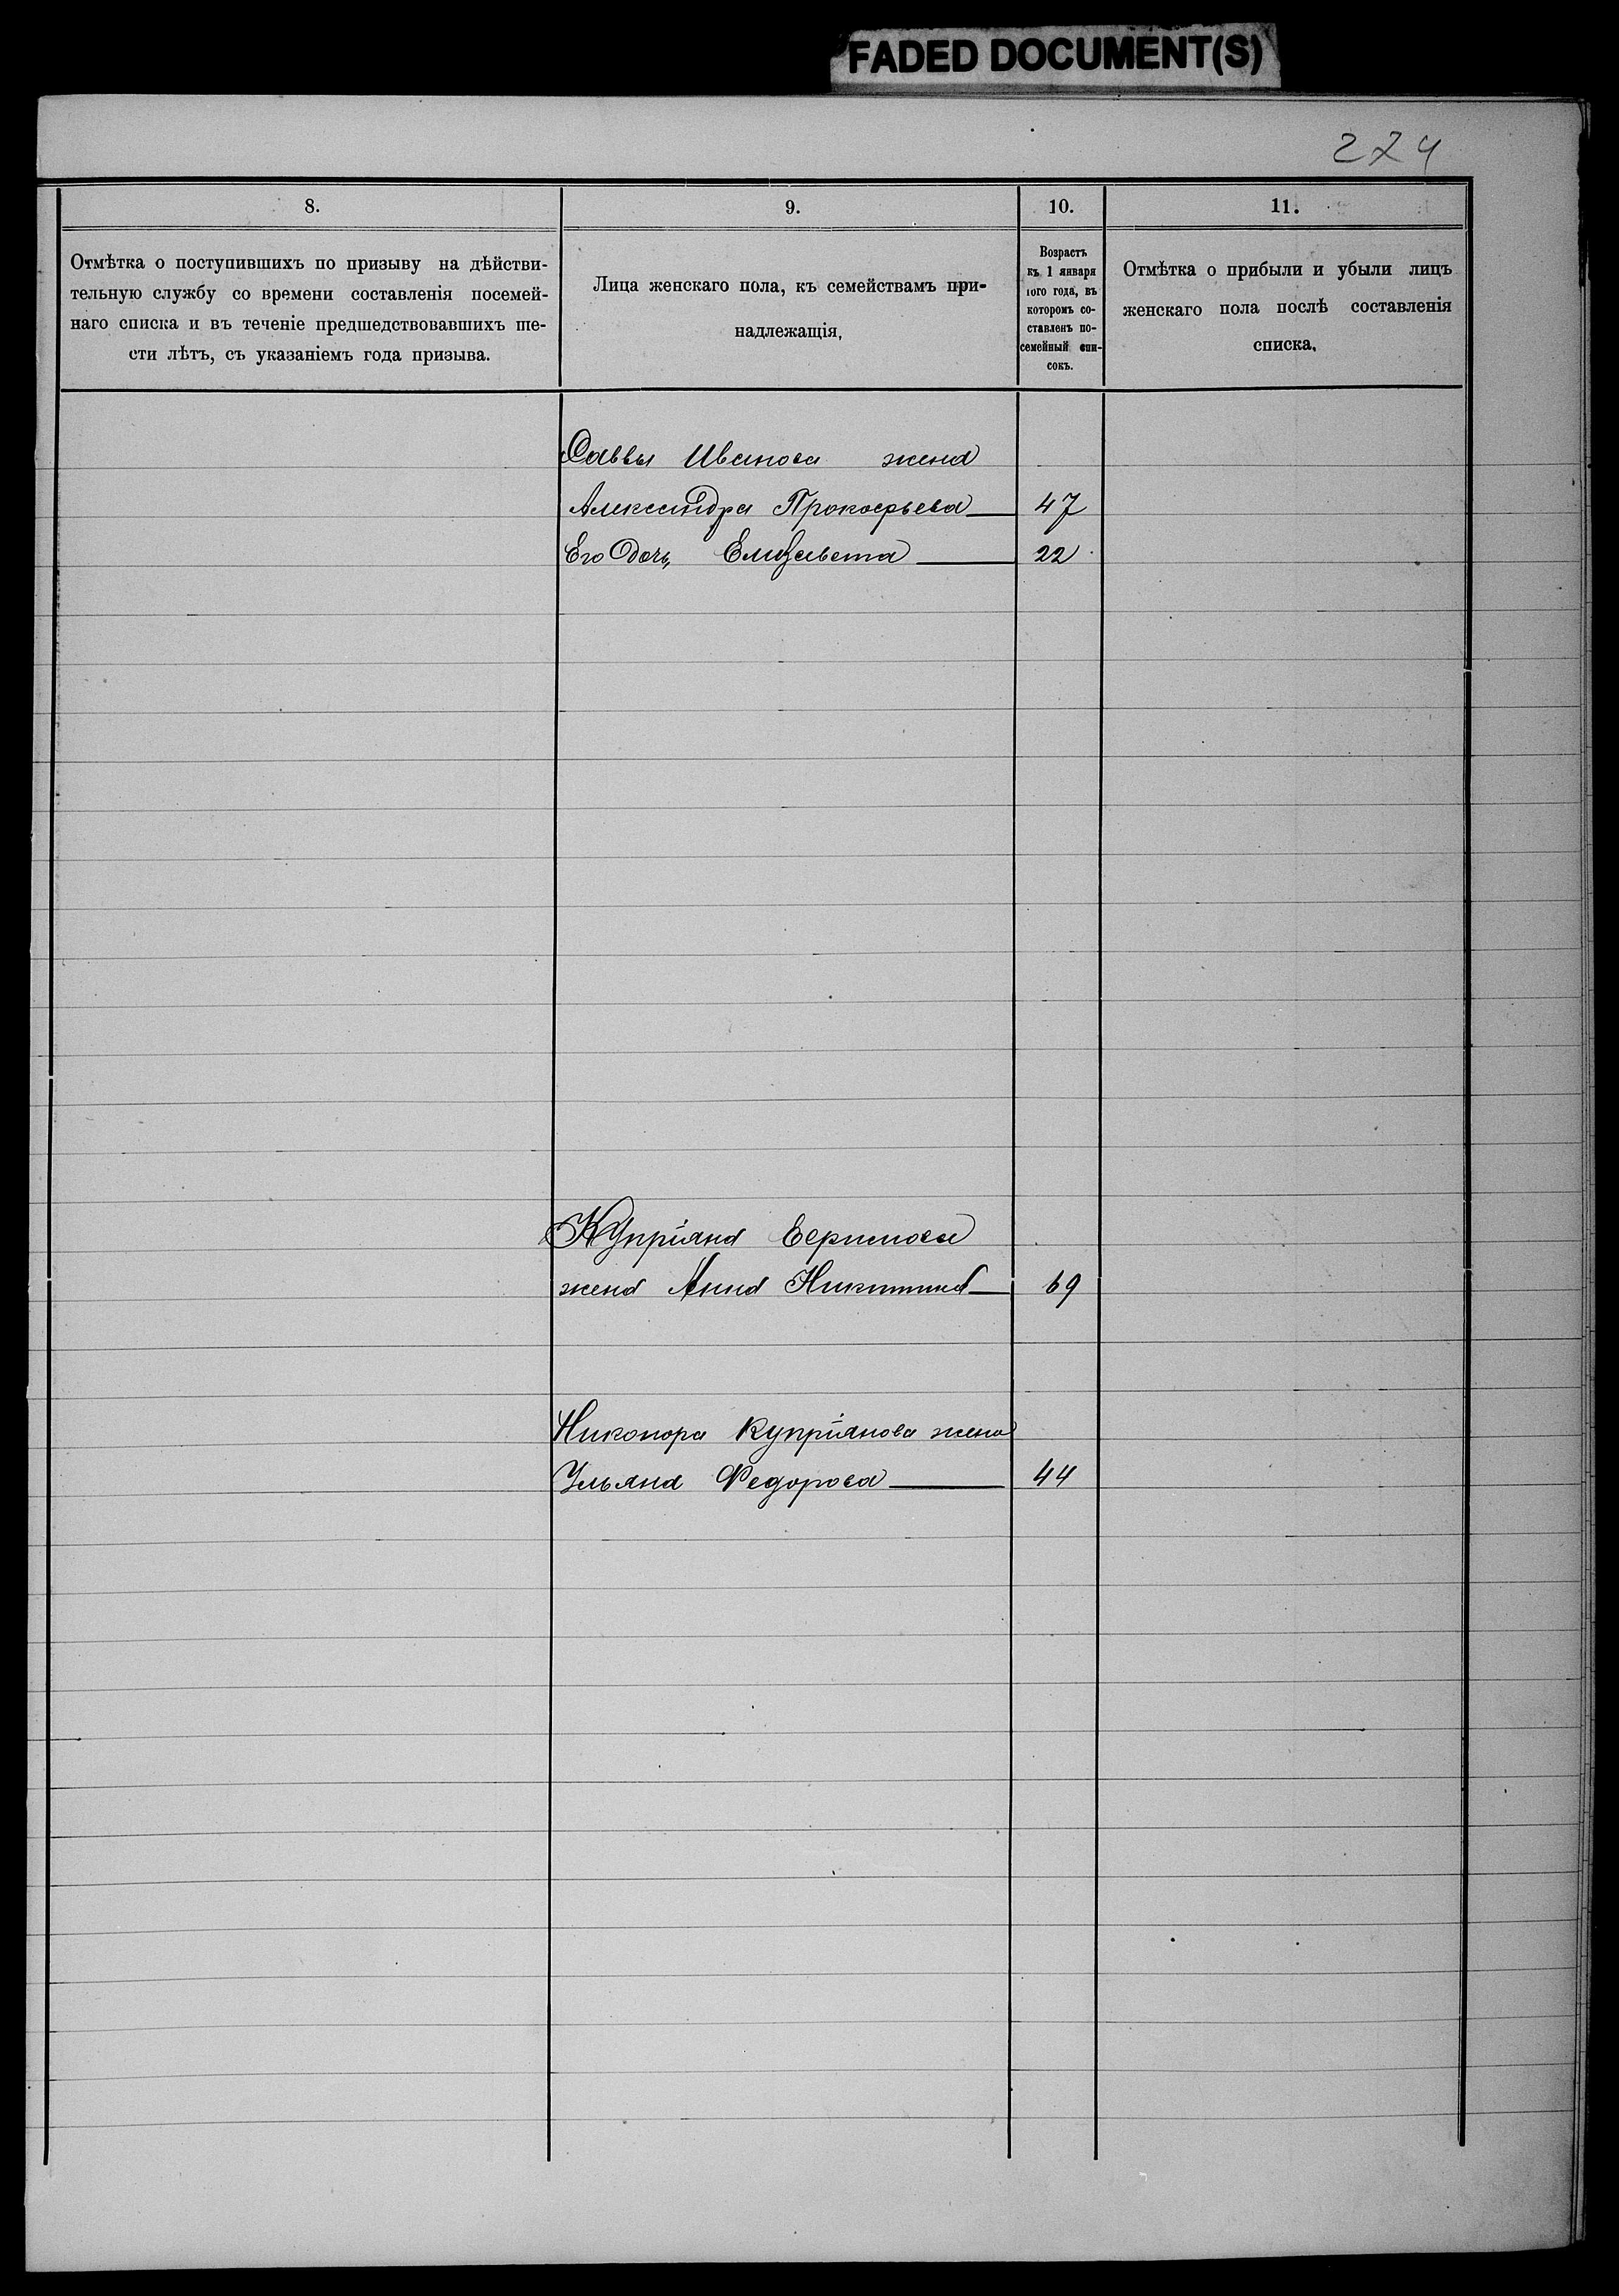 FADED DOCUMENT(S)
274
8.
9.
10.
11.
Отмѣтка о поступившихъ по призыву на дѣйстви-
тельную службу со времени составленія посемей-
наго списка и въ теченіе предшедствовавшихъ ше-
сти лѣтъ, съ указаніемъ года призыва.
Лица женскаго пола, къ семействамъ при-
надлежащія,
Возрастъ
къ 1 января
того года, въ
которомъ со-
ставленъ по-
семейный спи-
сокъ.
Отмѣтка о прибыли и убыли лицъ
женскаго пола послѣ составленія
списка.
Саввы Иванова жена
Александра Прокофьева 47
Его дочь, Елизавета 22
Купріяна
жена Анна Никитина 69
Никонора Купріянова жена
Ульяна Федорова 44